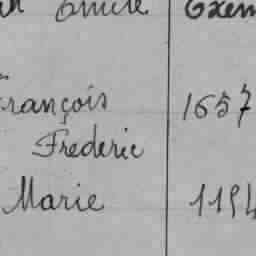 Emile Exem
François 1657
Frederic
Marie 1194